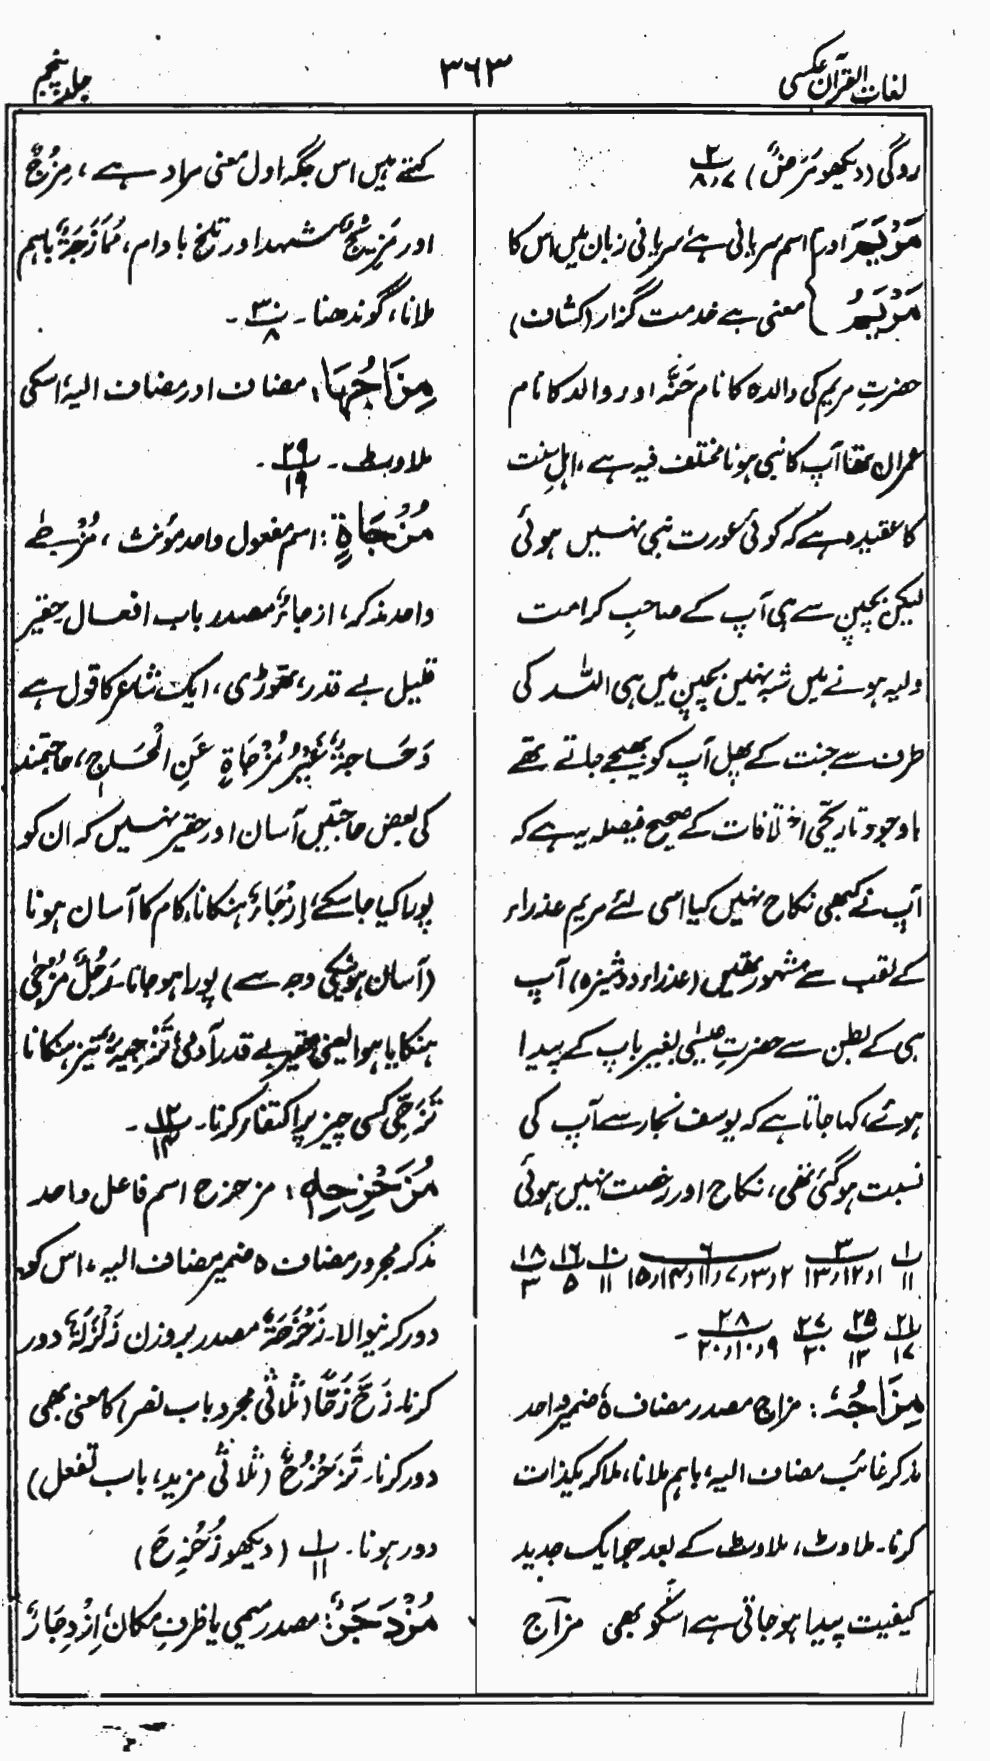 لغات القرآن عکسی
۳۶۳
جلد پنجم
روگی (دیکھو مَرَضٌ) ۲/۷،۸
مَرْیَمَ اور } اسم سریانی ہے سریانی زبان میں اس کا
مَرْیَمُ } معنی ہے خدمت گزار (کشاف)
حضرتِ مریم کی والدہ کا نام حَنَّہ اور والد کا نام
عمران تھا آپ کا نبی ہونا مختلف فیہ ہے، اہلِ سنت
کا عقیدہ ہے کہ کوئی عورت نبی نہیں ہوئی
لیکن بچپن سے ہی آپ کے صاحبِ کرامت
ولیہ ہونے میں شبہ نہیں بچپن میں ہی اللہ کی
طرف سے جنت کے پھل آپ کو بھیجے جاتے تھے
باوجود تاریخی اختلافات کے صحیح فیصلہ یہ ہے کہ
آپ نے کبھی نکاح نہیں کیا اسی لئے مریم عذراء
کے لقب سے مشہور تھیں (عذراء دوشیزہ) آپ
ہی کے بطن سے حضرتِ عیسیٰ بغیر باپ کے پیدا
ہوئے، کہا جاتا ہے کہ یوسف نجار سے آپ کی
نسبت ہو گئی تھی، نکاح اور رخصت نہیں ہوئی
۱/۱۱ ۳/۱،۱۲،۱۳ ۶/۲،۳،۷،۱۱،۱۴،۱۵ ۱۰/۱۱ ۱۶/۵ ۱۸/۳
۲۱/۱۷ ۲۵/۱۲ ۲۷/۲۰ ۲۸/۹،۱۰،۲۰ ۔
مِزَاجُہٗ : مزاج مصدر مضاف ہٗ ضمیر واحد
مذکر غائب مضاف الیہ، باہم ملانا، ملا کر یکذات
کرنا۔ ملاوٹ، ملاوٹ کے بعد جو ایک جدید
کیفیت پیدا ہو جاتی ہے اسکو بھی مزاج
کہتے ہیں اس جگہ اول معنی مراد ہے، مِزْجٌ
اور مَزِیجٌ شہد اور تلخ بادام، مُمَازَجَۃٌ باہم
ملانا، گوندھنا۔ ۳۰/۸ ۔
مِزَاجُہَا : مضاف اور مضاف الیہ، اسکی
ملاوٹ۔ ۲۹/۱۹ ۔
مُزْجَاةٍ : اسم مفعول واحد مؤنث، مُزْجیٰ
واحد مذکر، ازجاءٌ مصدر باب افعال حقیر
قلیل بے قدر، تھوڑی، ایک شاعر کا قول ہے
وَحَاجَۃٌ غَیْرُ مُزْجَاةٍ عَنِ الْحَاجِ، حاجتمند
کی بعض حاجتیں آسان اور حقیر نہیں کہ ان کو
پورا کیا جا سکے، اِزْجَاءٌ ہنکانا، کام کا آسان ہونا
(آسان ہونیکی وجہ سے) پورا ہو جانا۔ رَجُلٌ مُزْجیٰ
ہنکایا ہوا یعنی حقیر بے قدر آدمی تَزْجِیَۃٌ تیز ہنکانا
تَزَجِّی کسی چیز پر اکتفاء کرنا۔ ۱۳/۴ ۔
مُزَحْزِحِہٖ : مزحزح اسم فاعل واحد
مذکر مجرور مضاف ہ ضمیر مضاف الیہ، اس کو
دور کرنیوالا۔ زَحْزَحَۃٌ مصدر بروزن زَلْزَلَۃٌ دور
کرنا۔ زَحَّ زَحًّا (ثلاثی مجرد باب نصر) کا معنی بھی
دور کرنا۔ تَزَحْزُحٌ (ثلاثی مزید، باب تفعل)
دور ہونا۔ ۱/۱۱ (دیکھو زُحْزِحَ)
مُزْدَجَرٌ : مصدر میمی یا ظرفِ مکان، اِزْدِجَارٌ